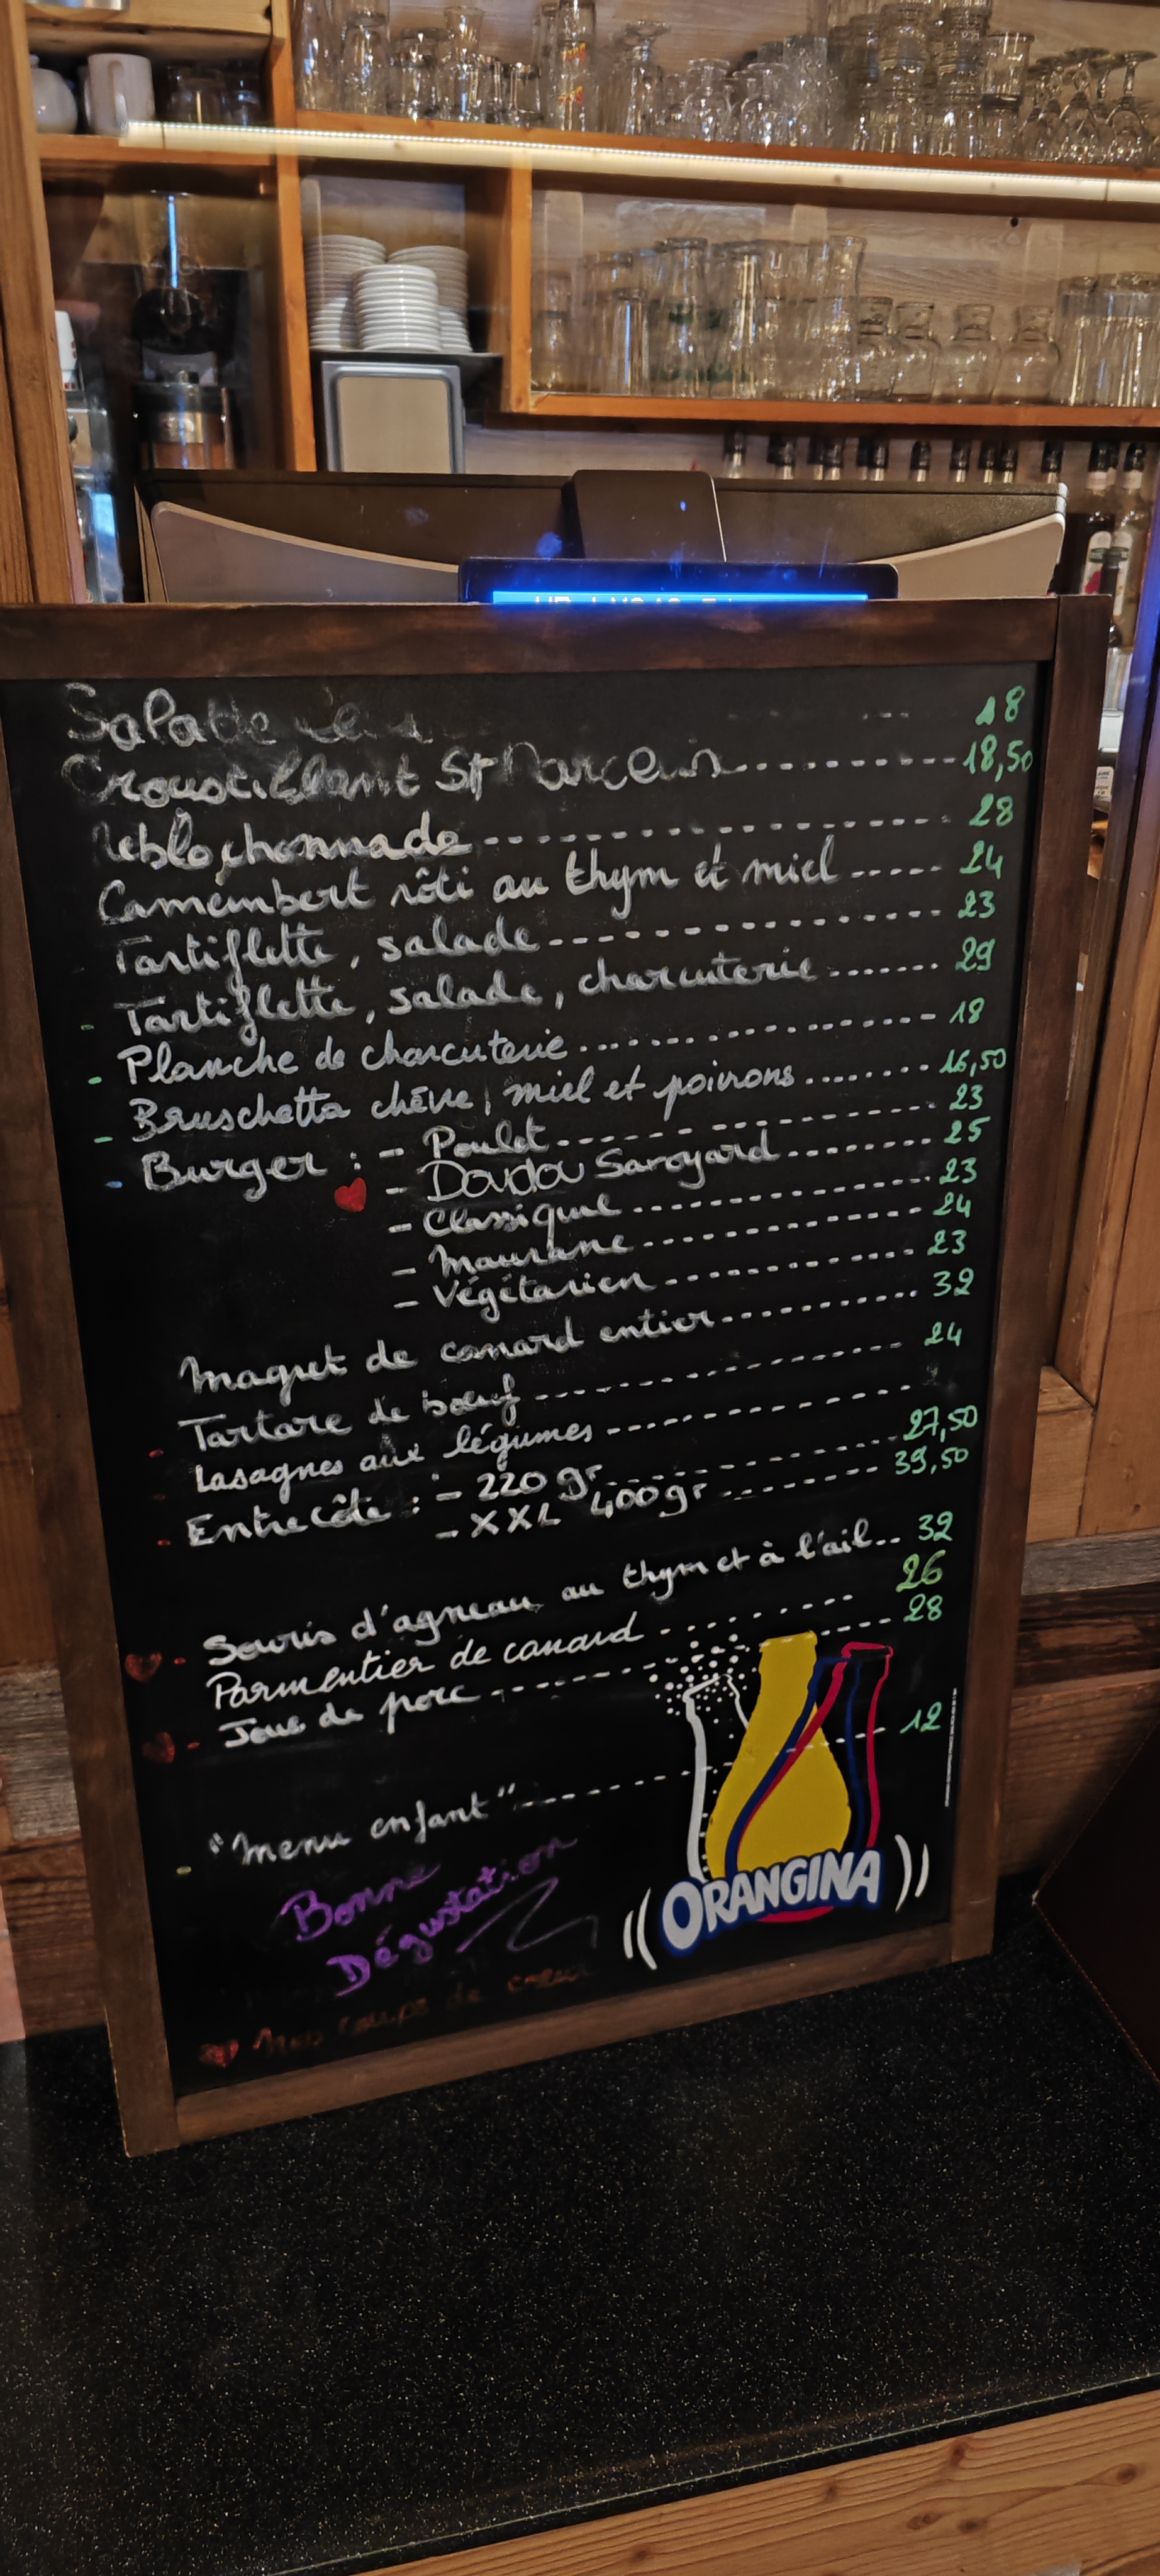 Salade 18
Croustillant St Marcelin 18,50
Reblochonnade 28
Camembert rôti au thym et miel 24
Tartiflette, salade 23
- Tartiflette, salade, charcuterie 29
- Planche de charcuterie 18
- Bruschetta chèvre, miel et poivrons 16,50
- Burger : - Poulet 23
- Doudou Savoyard 25
- Classique 23
- Maurane 24
- Végétarien 23
Magret de canard entier 32
- Tartare de bœuf 24
Lasagnes aux légumes
- Entrecôte : - 220 gr 27,50
- XXL 400gr 39,50
- Souris d'agneau au thym et à l'ail 32
Parmentier de canard 26
- Joue de porc 28
- "Menu enfant" 12
Bonne
Dégustation
Nos coups de cœur
ORANGINA